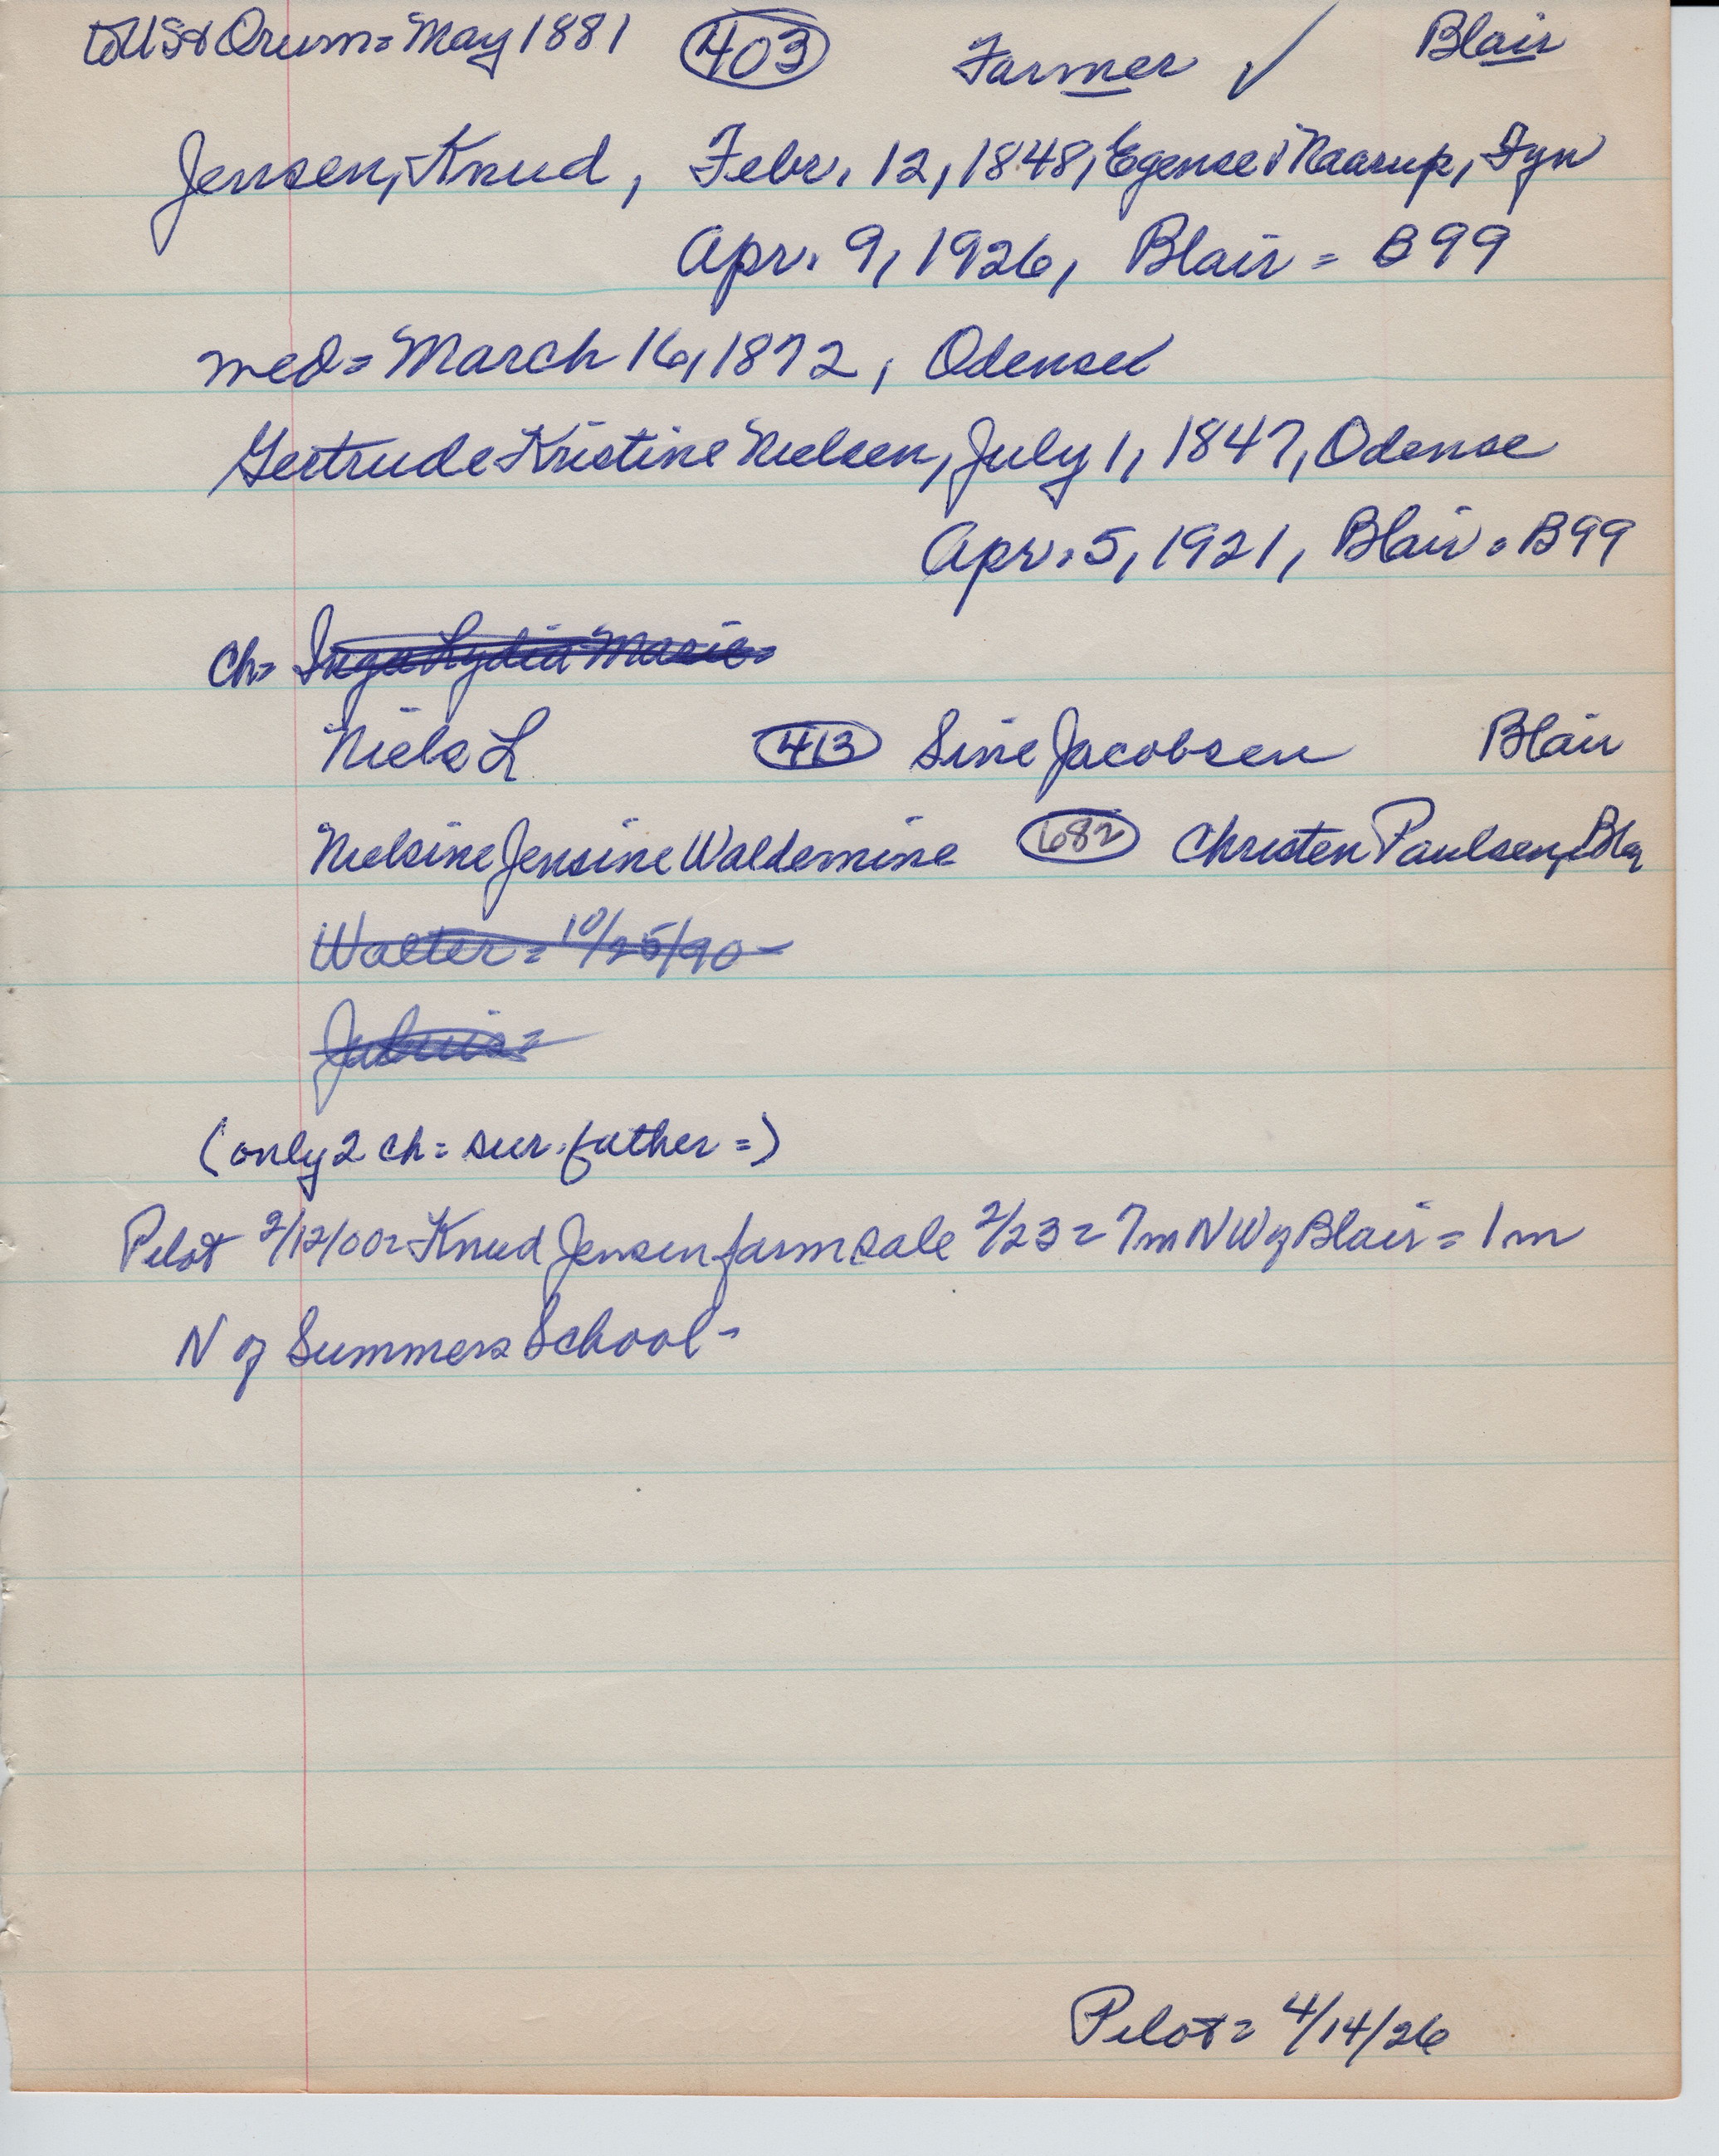 to US & Orum = May 1881 403 Farmer ✓ Blair
Jensen, Knud, Febr. 12, 1848, Egense i Naarup, Fyn
Apr. 9, 1926, Blair = B99
med = March 16, 1872, Odense
Gertrude Kristine Nielsen, July 1, 1847, Odense
Apr. 5, 1921, Blair = B99
ch = Inga Lydia Marie =
Niels L 413 Sine Jacobsen Blair
Nielsine Jensine Waldemine 682 Christen Paulsen, Blair
Walter = 10/25/90 -
(only 2 ch = sur. father =)
Pilot 2/12/00 = Knud Jensen farm sale 2/23 = 7m NW of Blair = 1m
N of Summers School -
Pilot = 4/14/26